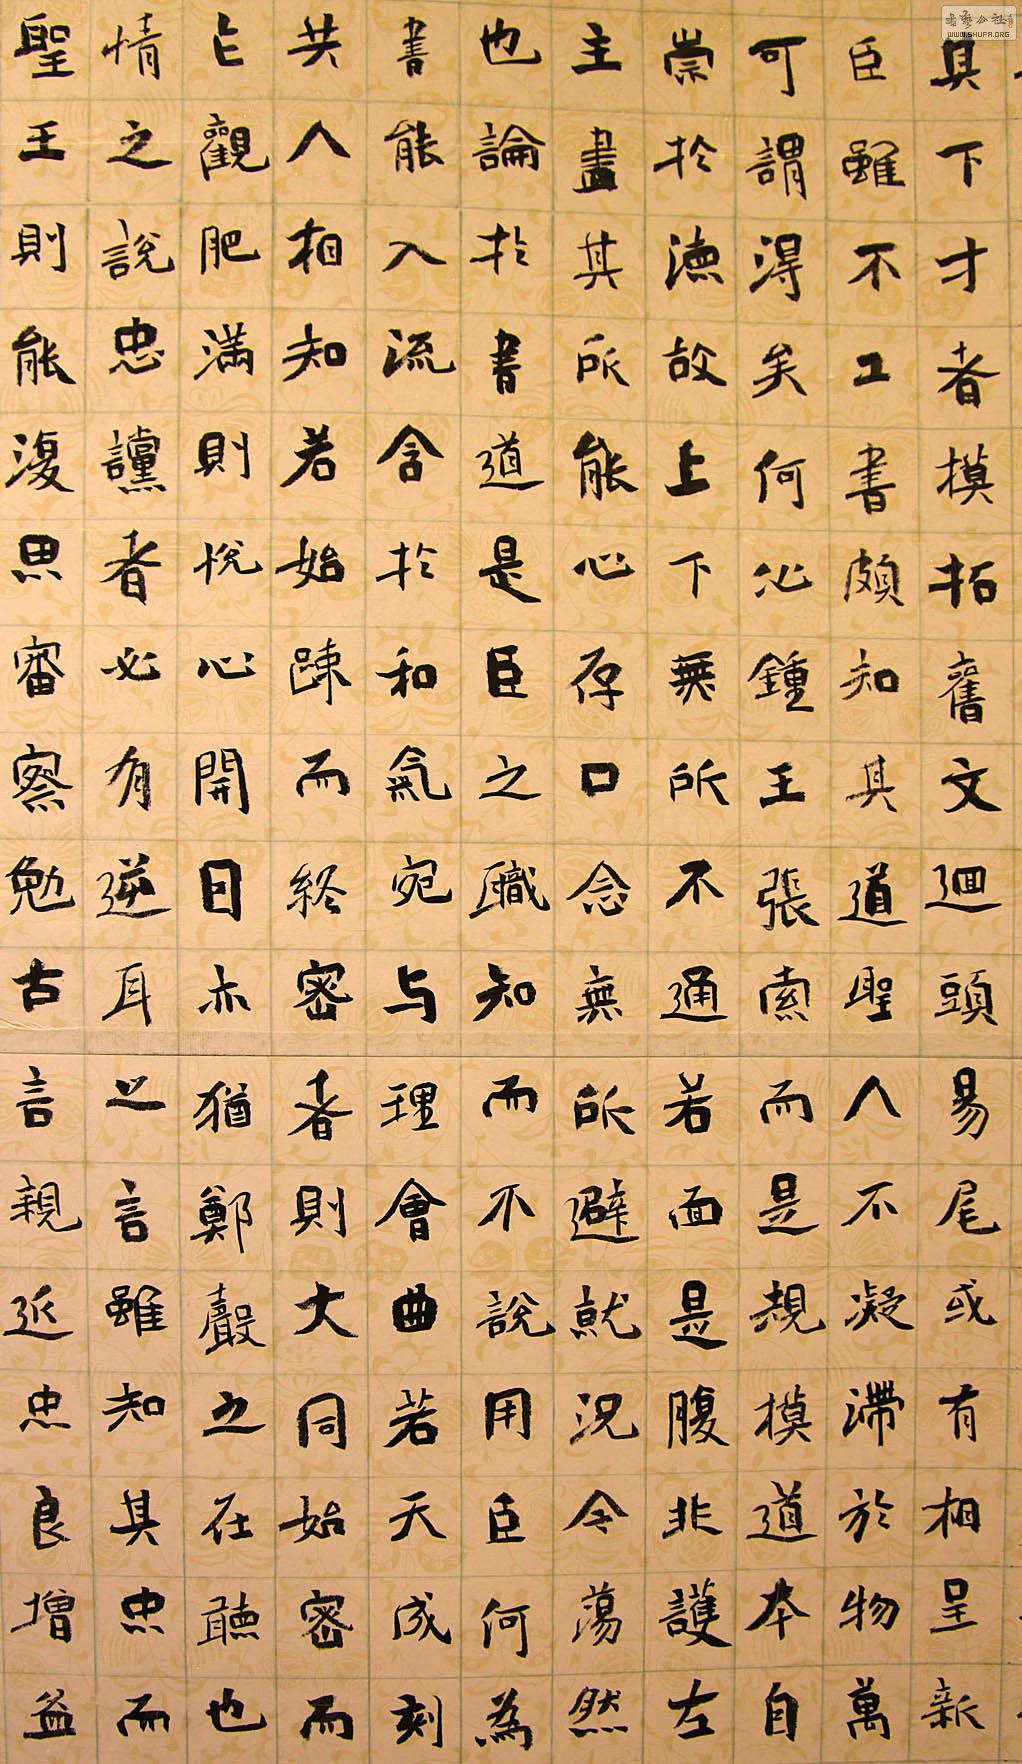 具下才者模拓舊文迴頭易尾或有相呈新
臣雖不工書頗知其道聖人不凝滯於物萬
可謂得矣何必鍾王張索而是規模道本自
崇於德故上下無所不通若面是腹非護左
主晝其所能心存口念無所避就況今蕩然
也論於書道是臣之職知而不說用臣何為
書能入流含於和氣宛与理會曲若天成刻
共人相知若始踈而終密者則大同始密而
亡觀肥滿則悅心開目亦猶鄭聲之在聽也
情之說忠讜者必有逆耳之言雖知其忠而
聖王則能復思審察勉古言親近忠良增益
書藝公社
WWW.SHUFA.ORG